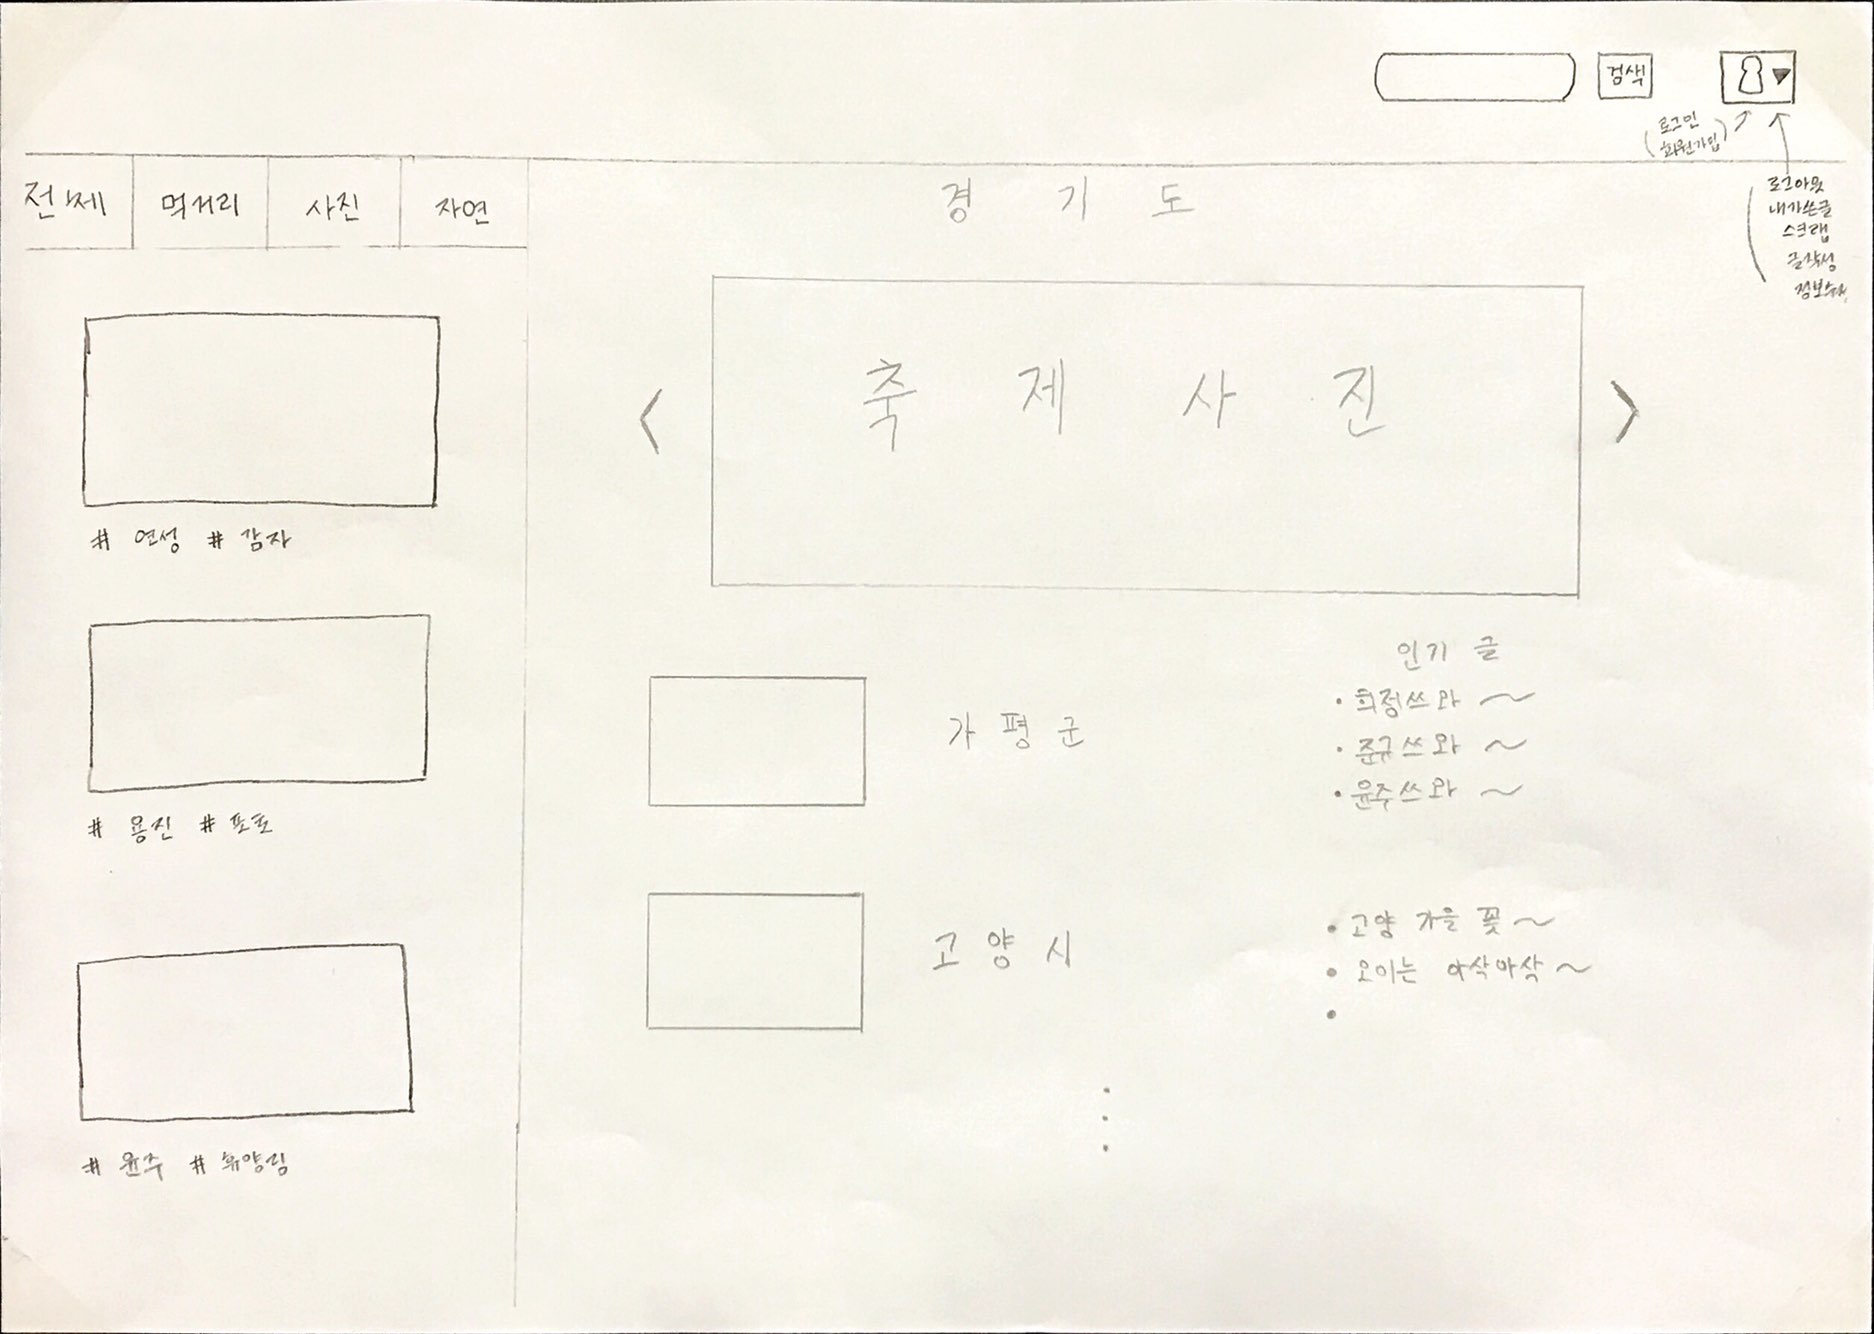 검색
로그인
회원가입
로그아웃
내가쓴글
스크랩
글작성
정보수정
전체 먹거리 사진 자연
경 기 도
축 제 사 진
# 연성 # 감자
# 용진 # 포포
# 윤주 # 휴양림
인기 글
가 평 군
· 희정쓰와 ~
· 준규쓰와 ~
· 윤주쓰와 ~
고 양 시
· 고양 가을 꽃 ~
· 오이는 아삭아삭 ~